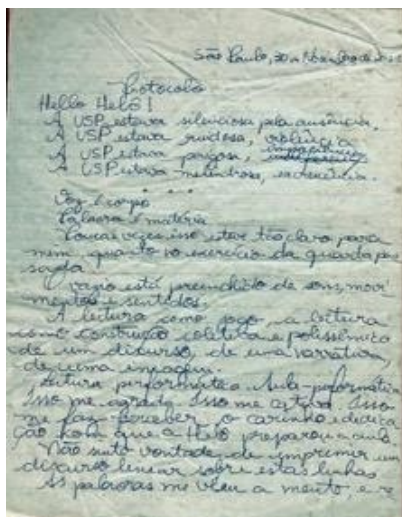 São Paulo, 20 de Novembro de
Protocolo
Hello Helô!
A USP estava silenciosa pela ausência.
A USP estava ruidosa, violência
A USP estava perigosa,
A USP estava melindrosa,
• • •
Voz é corpo
Palavra é matéria
Poucas vezes isso esteve tão claro para
mim, quanto no exercício da quarta pas
sada.
O vazio está preenchido de sons, movi
mentos e sentidos.
A leitura como jogo, a leitura
como construção coletiva e polissêmica
de um discurso, de uma narrativa,
de uma imagem.
Leitura performática Aula-performática
Isso me agrada. Isso me Isso
me faz perceber o carinho e dedica
ção que a Helô preparou a aula.
Não sinto vontade de imprimir um
discurso linear sobre estas linhas
As palavras me vêem a mente, e re